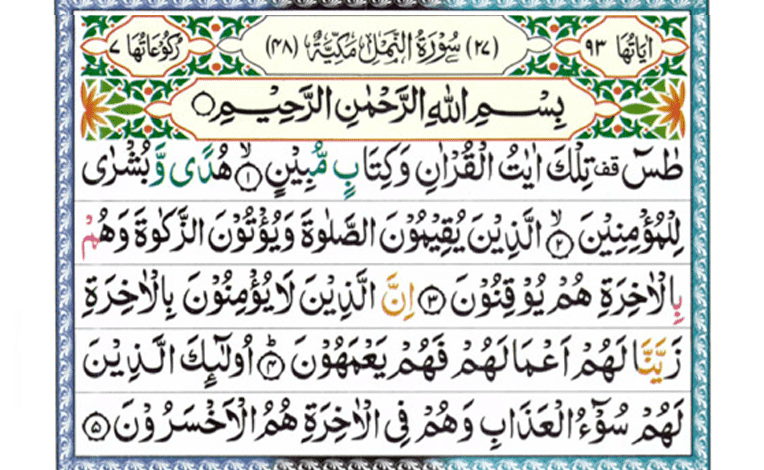 اٰيَاتُهَا ٩٣ (٢٧) سُوْرَةُ النَّمْلِ مَكِّيَّةٌ (٤٨) رُكُوْعَاتُهَا ٧
بِسْمِ اللّٰهِ الرَّحْمٰنِ الرَّحِيْمِ
طٰسٓ قف تِلْكَ اٰيٰتُ الْقُرْاٰنِ وَكِتَابٍ مُّبِيْنٍ ۙ﴿١﴾ هُدًى وَّبُشْرٰى
لِلْمُؤْمِنِيْنَ ۙ﴿٢﴾ الَّذِيْنَ يُقِيْمُوْنَ الصَّلٰوةَ وَيُؤْتُوْنَ الزَّكٰوةَ وَهُمْ
بِالْاٰخِرَةِ هُمْ يُوْقِنُوْنَ ﴿٣﴾ اِنَّ الَّذِيْنَ لَا يُؤْمِنُوْنَ بِالْاٰخِرَةِ
زَيَّنَّا لَهُمْ اَعْمَالَهُمْ فَهُمْ يَعْمَهُوْنَ ؕ﴿٤﴾ اُولٰٓئِكَ الَّذِيْنَ
لَهُمْ سُوْٓءُ الْعَذَابِ وَهُمْ فِى الْاٰخِرَةِ هُمُ الْاَخْسَرُوْنَ ﴿٥﴾